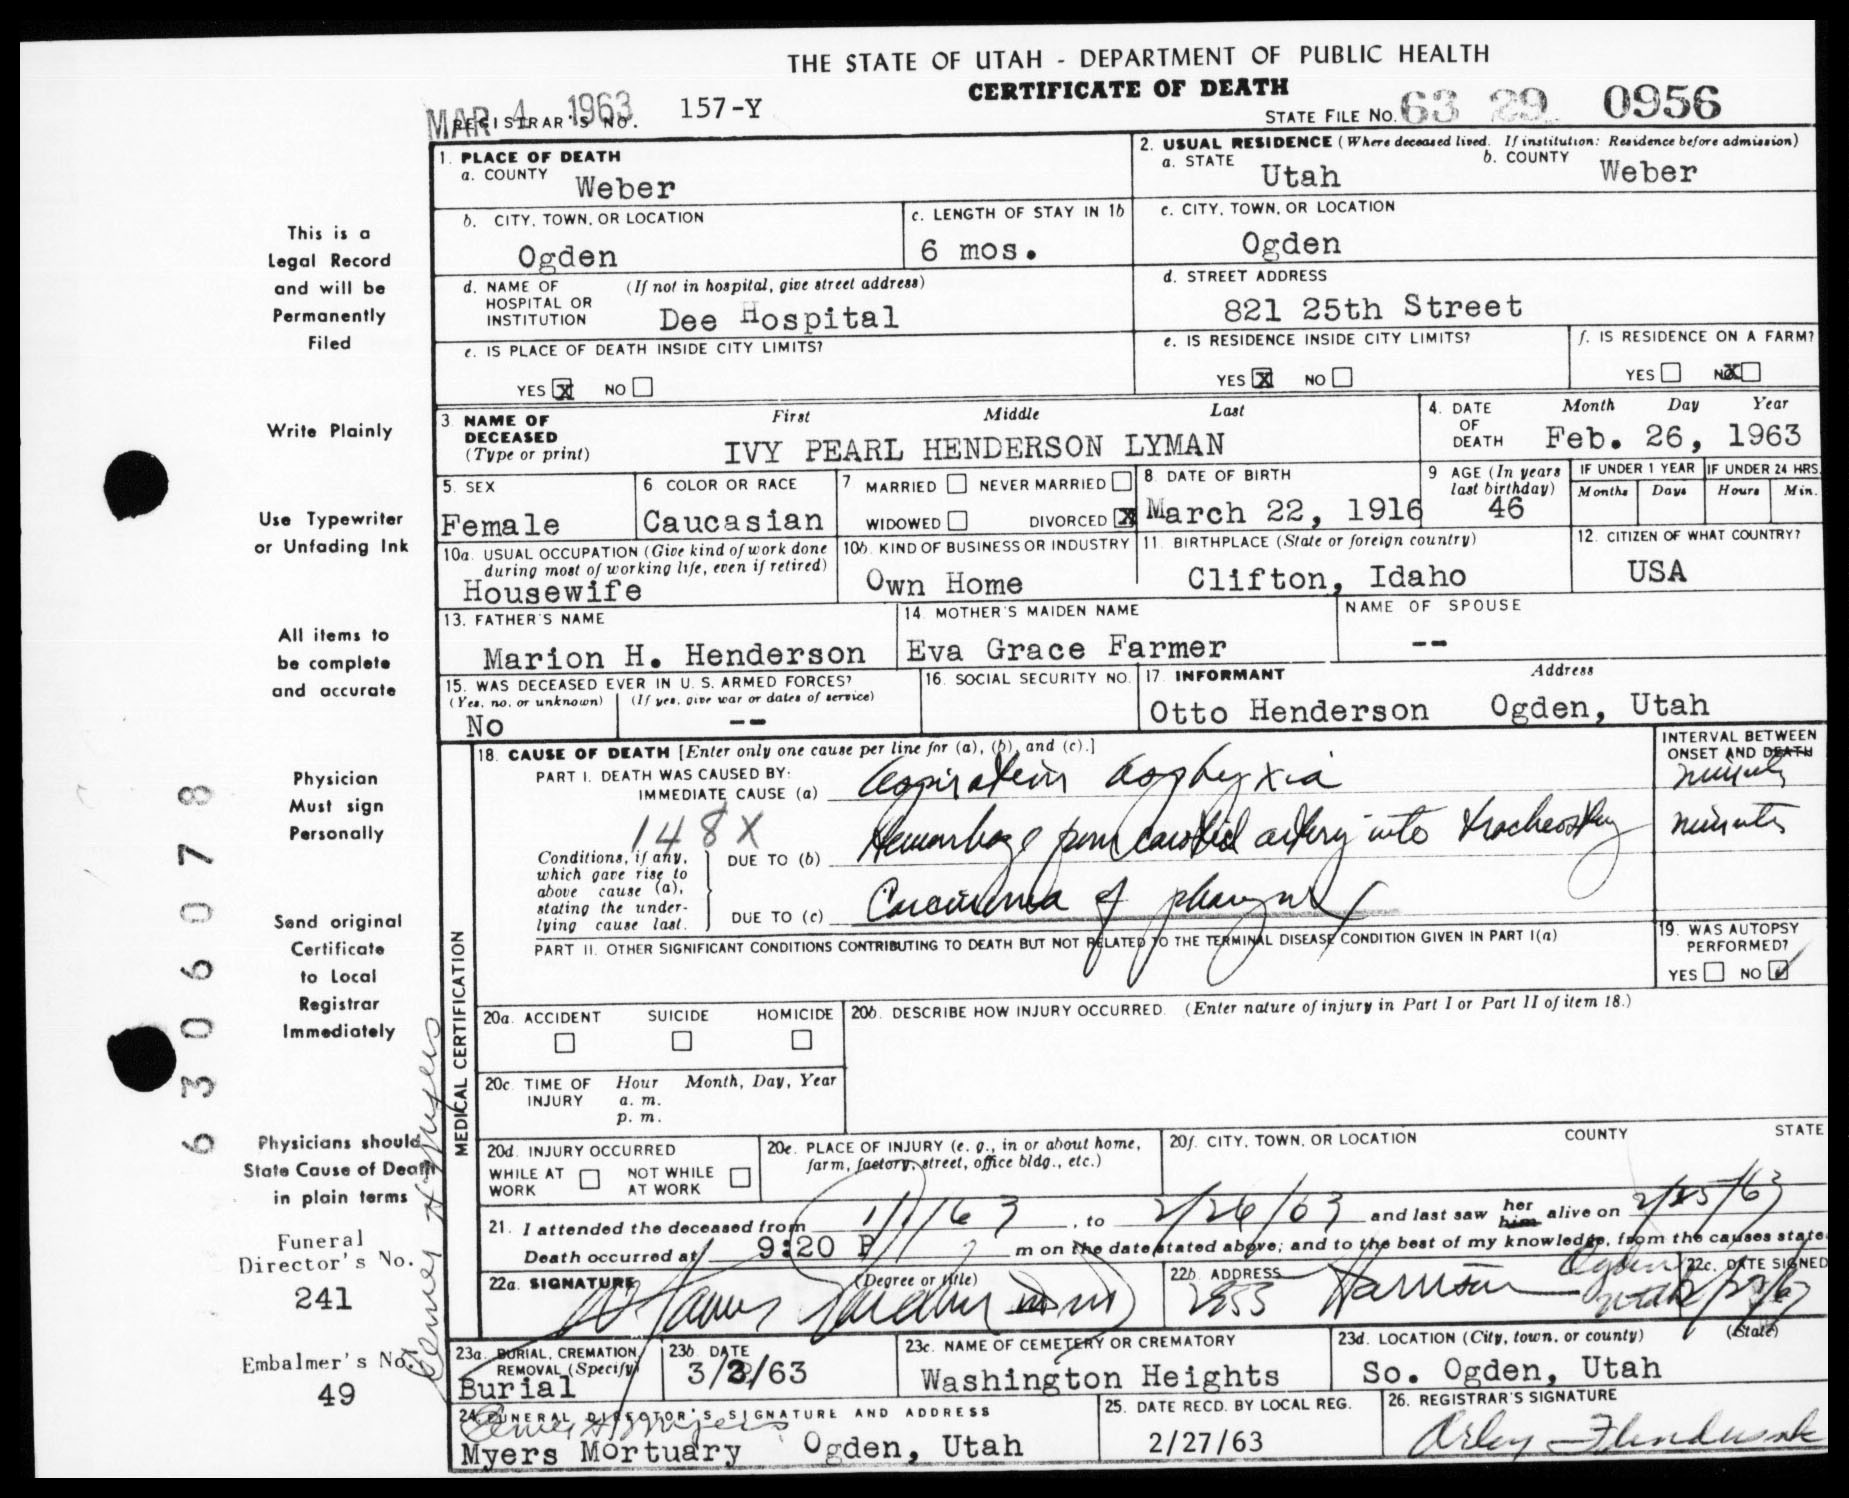 THE STATE OF UTAH - DEPARTMENT OF PUBLIC HEALTH
CERTIFICATE OF DEATH
MAR 4 1963
REGISTRAR'S NO. 157-Y
STATE FILE NO. 63 29 0956
1. PLACE OF DEATH
a. COUNTY Weber
2. USUAL RESIDENCE (Where deceased lived. If institution: Residence before admission)
a. STATE Utah b. COUNTY Weber
b. CITY, TOWN, OR LOCATION Ogden
c. LENGTH OF STAY IN 1b 6 mos.
c. CITY, TOWN, OR LOCATION Ogden
d. NAME OF HOSPITAL OR INSTITUTION (If not in hospital, give street address) Dee Hospital
d. STREET ADDRESS 821 25th Street
e. IS PLACE OF DEATH INSIDE CITY LIMITS?
YES X NO
e. IS RESIDENCE INSIDE CITY LIMITS?
YES X NO
f. IS RESIDENCE ON A FARM?
YES NO X
3. NAME OF DECEASED (Type or print)
First Middle Last
IVY PEARL HENDERSON LYMAN
4. DATE OF DEATH Month Day Year
Feb. 26, 1963
5. SEX Female
6. COLOR OR RACE Caucasian
7 MARRIED NEVER MARRIED
WIDOWED DIVORCED X
8. DATE OF BIRTH March 22, 1916
9 AGE (In years last birthday) 46
IF UNDER 1 YEAR Months Days
IF UNDER 24 HRS. Hours Min.
10a. USUAL OCCUPATION (Give kind of work done during most of working life, even if retired) Housewife
10b. KIND OF BUSINESS OR INDUSTRY Own Home
11. BIRTHPLACE (State or foreign country) Clifton, Idaho
12. CITIZEN OF WHAT COUNTRY? USA
13. FATHER'S NAME Marion H. Henderson
14. MOTHER'S MAIDEN NAME Eva Grace Farmer
NAME OF SPOUSE --
15. WAS DECEASED EVER IN U. S. ARMED FORCES?
(Yes, no, or unknown) No
(If yes, give war or dates of service) --
16. SOCIAL SECURITY NO.
17. INFORMANT Address
Otto Henderson Ogden, Utah
18. CAUSE OF DEATH [Enter only one cause per line for (a), (b), and (c).]
INTERVAL BETWEEN ONSET AND DEATH
PART I. DEATH WAS CAUSED BY:
IMMEDIATE CAUSE (a) Aspiration asphyxia minutes
148X
Conditions, if any, which gave rise to above cause (a), stating the underlying cause last.
DUE TO (b) Hemorrhage from carotid artery into tracheostomy minutes
DUE TO (c) Carcinoma of pharynx
PART II. OTHER SIGNIFICANT CONDITIONS CONTRIBUTING TO DEATH BUT NOT RELATED TO THE TERMINAL DISEASE CONDITION GIVEN IN PART I(a)
19. WAS AUTOPSY PERFORMED?
YES NO ✓
MEDICAL CERTIFICATION
20a. ACCIDENT SUICIDE HOMICIDE
20b. DESCRIBE HOW INJURY OCCURRED. (Enter nature of injury in Part I or Part II of item 18.)
20c. TIME OF INJURY Hour Month, Day, Year
a. m.
p. m.
20d. INJURY OCCURRED
WHILE AT WORK NOT WHILE AT WORK
20e. PLACE OF INJURY (e. g., in or about home, farm, factory, street, office bldg., etc.)
20f. CITY, TOWN, OR LOCATION COUNTY STATE
21. I attended the deceased from 1/1/63, to 2/26/63 and last saw her him alive on 2/25/63
Death occurred at 9:20 P m on the date stated above; and to the best of my knowledge, from the causes state
22a. SIGNATURE (Degree or title)
22b. ADDRESS Harrison Ogden Utah
22c. DATE SIGNED 2/27/63
23a. BURIAL, CREMATION, REMOVAL (Specify) Burial
23b. DATE 3/2/63
23c. NAME OF CEMETERY OR CREMATORY Washington Heights
23d. LOCATION (City, town, or county) (State)
So. Ogden, Utah
24. FUNERAL DIRECTOR'S SIGNATURE AND ADDRESS
Elmer H Myers
Myers Mortuary Ogden, Utah
25. DATE RECD. BY LOCAL REG. 2/27/63
26. REGISTRAR'S SIGNATURE
This is a
Legal Record
and will be
Permanently
Filed
Write Plainly
Use Typewriter
or Unfading Ink
All items to
be complete
and accurate
Physician
Must sign
Personally
Send original
Certificate
to Local
Registrar
Immediately
Physicians should
State Cause of Death
in plain terms
Funeral
Director's No.
241
Embalmer's No.
49
Elmer H Myers
6306078